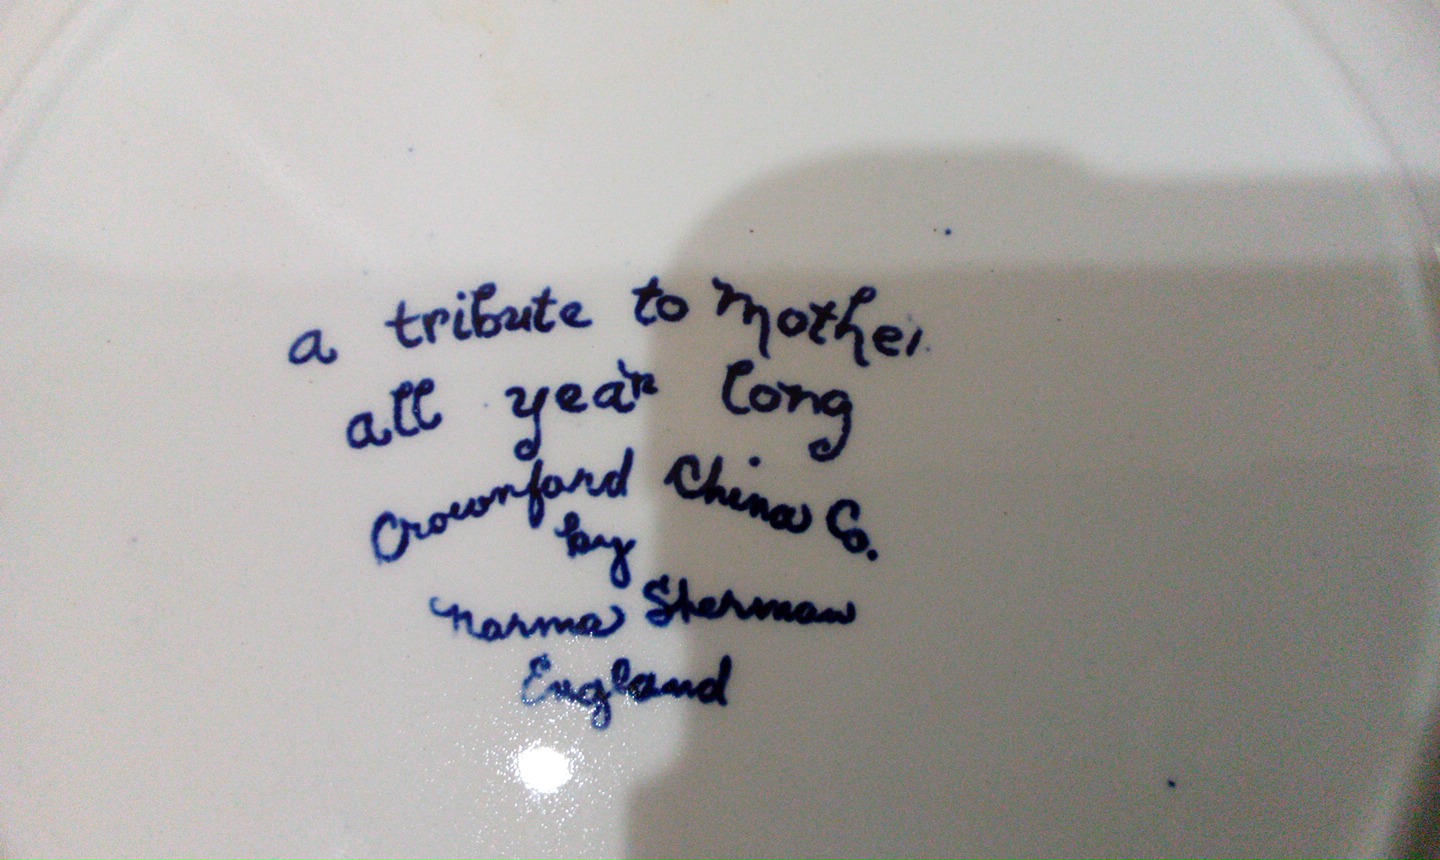 a tribute to Mother
all year long
Crownford China Co.
by
Norma Sherman
England